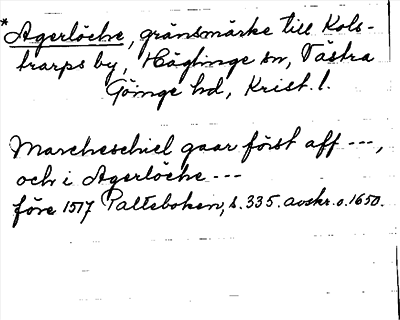 *Agerlöcke, gränsmärke till Kols-
trarps by, Häglinge sn, Västra
Göinge hd, Krist. l.
Marckeschiel gaar först aff ---,
och i Agerlöcke ---
före 1517 Palteboken, s. 335. avskr. o. 1650.